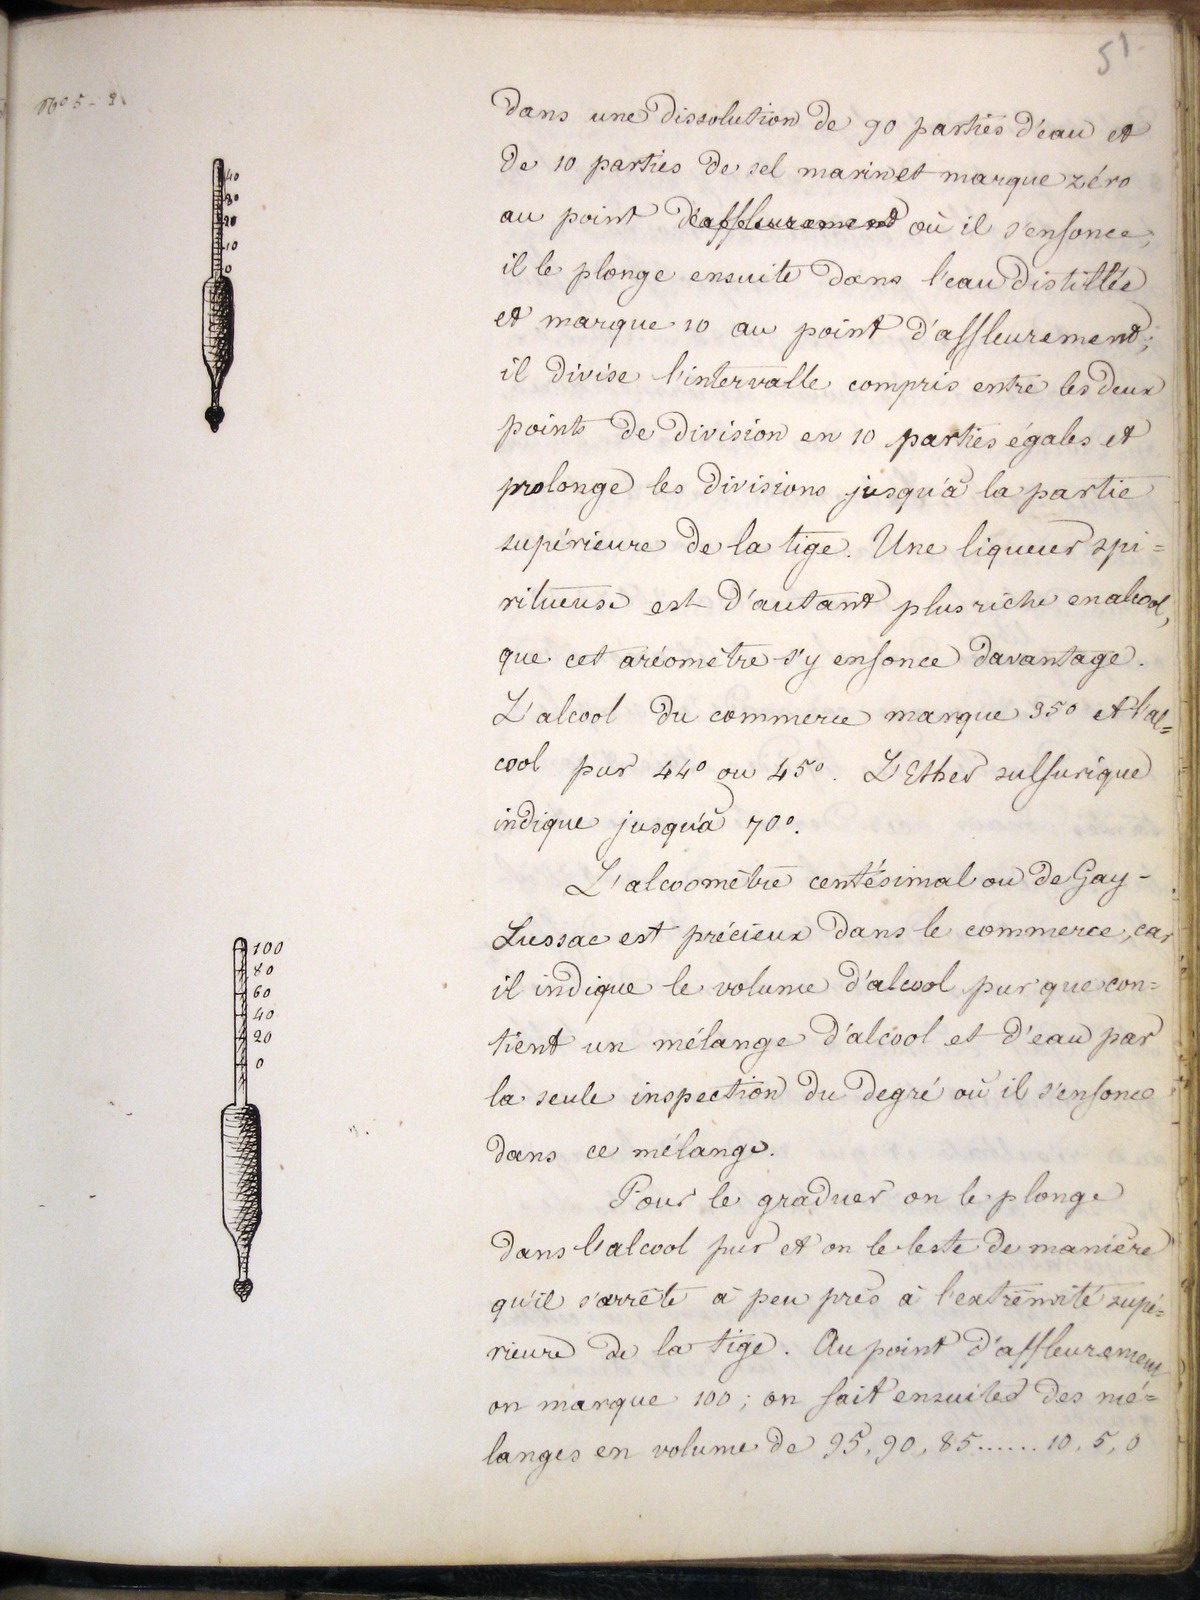 51
No 5 -
dans une dissolution de 90 parties d'eau et
de 10 parties de sel marin et marque zéro
au point d'affleurement où il s'enfonce;
il le plonge ensuite dans l'eau distillée
et marque 10 au point d'affleurement;
il divise l'intervalle compris entre les deux
points de division en 10 parties égales et
prolonge les divisions jusqu'à la partie
supérieure de la tige. Une liqueur spi=
ritueuse est d'autant plus riche en alcool,
que cet aréomètre s'y enfonce davantage.
L'alcool du commerce marque 35° et l'al=
cool pur 44° ou 45°. L'Ether sulfurique
indique jusqu'à 70°.
L'alcoomètre centésimal ou de Gay-
Lussac est précieux dans le commerce, car
il indique le volume d'alcool pur que con=
tient un mélange d'alcool et d'eau par
la seule inspection du degré où il s'enfonce
dans ce mélange.
Pour le graduer on le plonge
dans l'alcool pur et on le leste de manière
qu'il s'arrête à peu près à l'extrémité supé=
rieure de la tige. Au point d'affleurement
on marque 100; on fait ensuite des mé=
langes en volume de 95, 90, 85...... 10, 5, 0
40
30
20
10
0
100
80
60
40
20
0